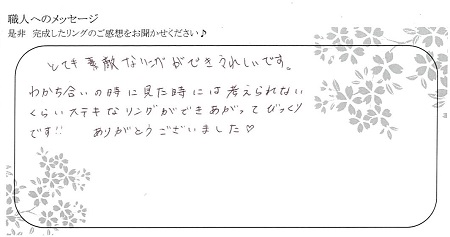 職人へのメッセージ
是非 完成したリングのご感想をお聞かせください♪
とても素敵なリングができうれしいです。
わかち合いの時に見た時には考えられない
くらいステキなリングができあがってびっくり
です!! ありがとうございました♡